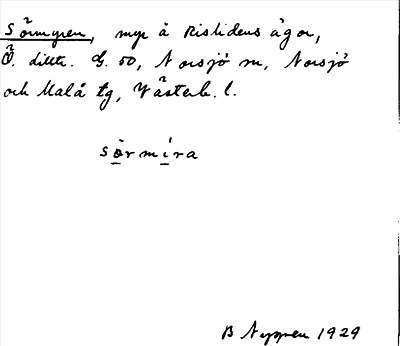 Sörmyren, myr å Risliden ägor,
Ö. distr. G. 50, Norsjö sn, Norsjö
och Malå tg, Västerb. l.
sörmira
B Nyppen 1929